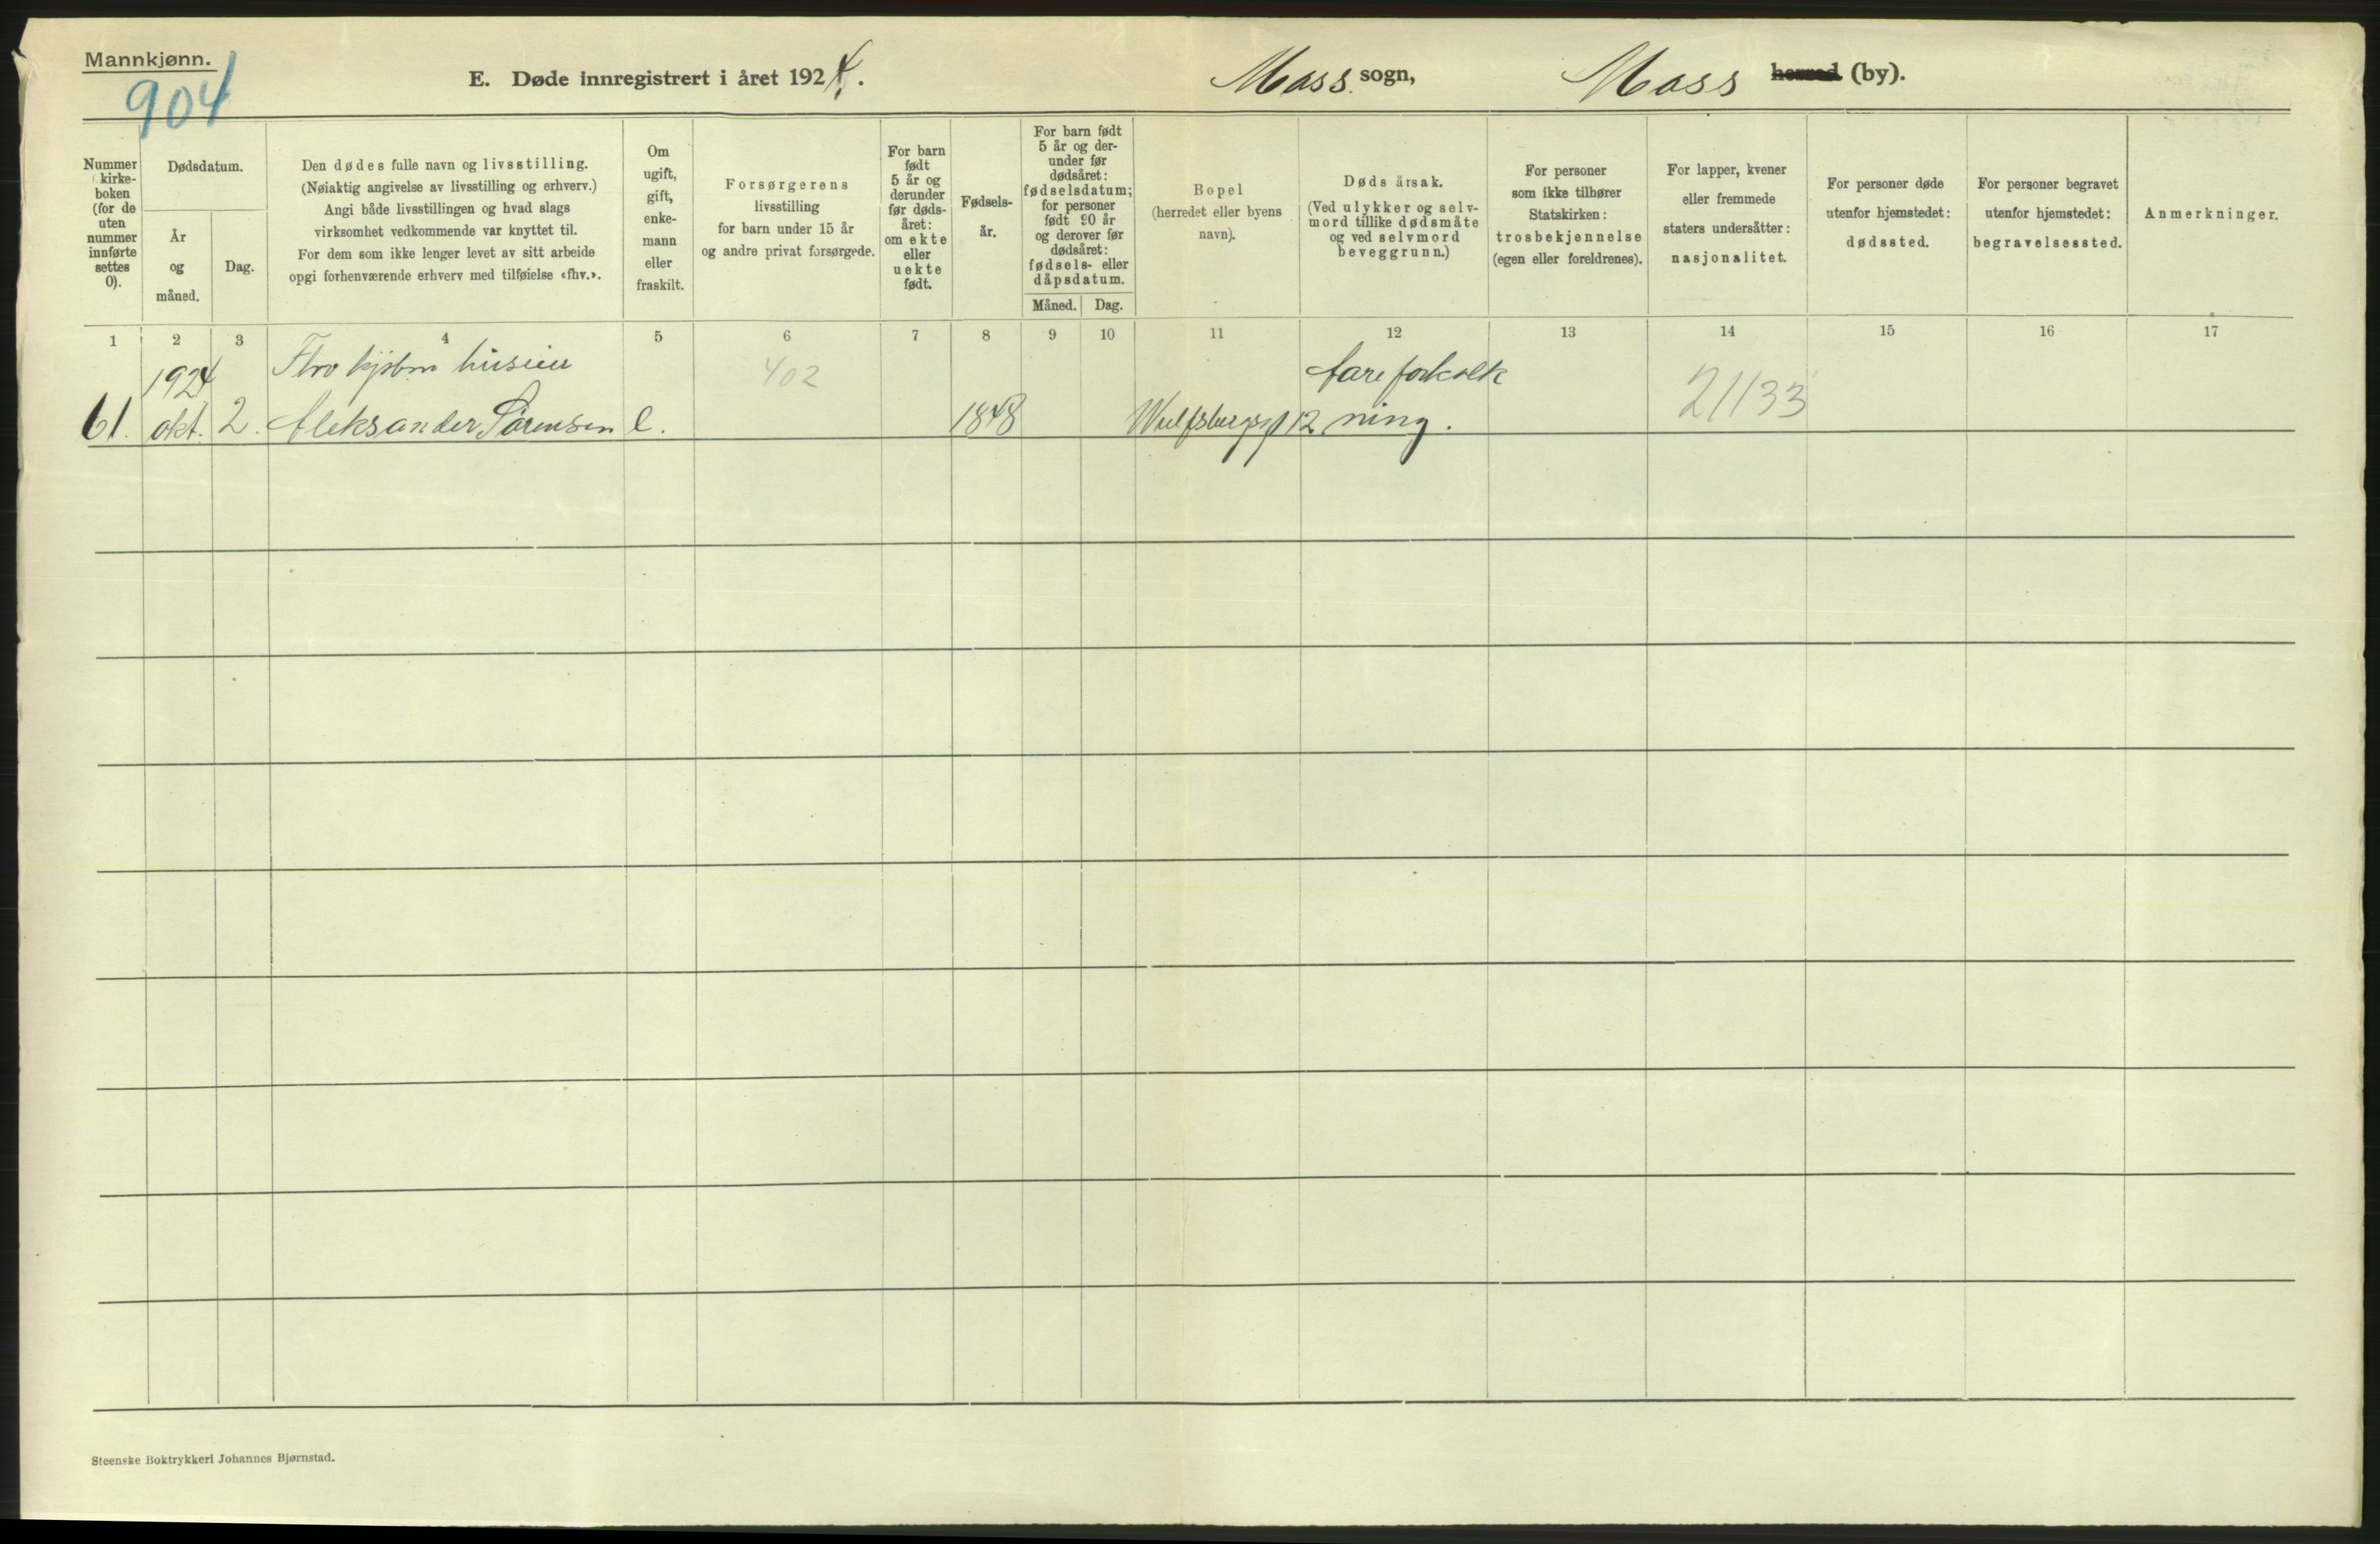 Mannkjønn.
904
E. Døde innregistrert i året 1924.
Moss sogn,
Moss herred (by).
Nummer
i kirke-
boken
(for de
uten
nummer
innførte
settes
0).
Dødsdatum.
År
og
måned.
Dag.
Den dødes fulle navn og livsstilling.
(Nøiaktig angivelse av livsstilling og erhverv.)
Angi både livsstillingen og hvad slags
virksomhet vedkommende var knyttet til.
For dem som ikke lenger levet av sitt arbeide
opgi forhenværende erhverv med tilføielse «fhv.».
Om
ugift,
gift,
enke-
mann
eller
fraskilt.
Forsørgerens
livsstilling
for barn under 15 år
og andre privat forsørgede.
For barn
født
5 år og
derunder
før døds-
året:
om ekte
eller
uekte
født.
Fødsels-
år.
For barn født
5 år og der-
under før
dødsåret:
fødselsdatum;
for personer
født 90 år
og derover før
dødsåret:
fødsels- eller
dåpsdatum.
Måned.
Dag.
Bopel
(herredet eller byens
navn).
Dødsårsak.
(Ved ulykker og selv-
mord tillike dødsmåte
og ved selvmord
beveggrunn.)
For personer
som ikke tilhører
Statskirken:
trosbekjennelse
(egen eller foreldrenes).
For lapper, kvener
eller fremmede
staters undersåtter:
nasjonalitet.
For personer døde
utenfor hjemstedet:
dødssted.
For personer begravet
utenfor hjemstedet:
begravelsessted.
Anmerkninger.
1 2 3 4 5 6 7 8 9 10 11 12 13 14 15 16 17
1924 Fhv kjøbm huseier 402 Aareforkalk 21133
61. okt. 2. Aleksander Sørensen e. 1848 Wulfsbergsgt 12 ning.
Steenske Boktrykkeri Johannes Bjørnstad.